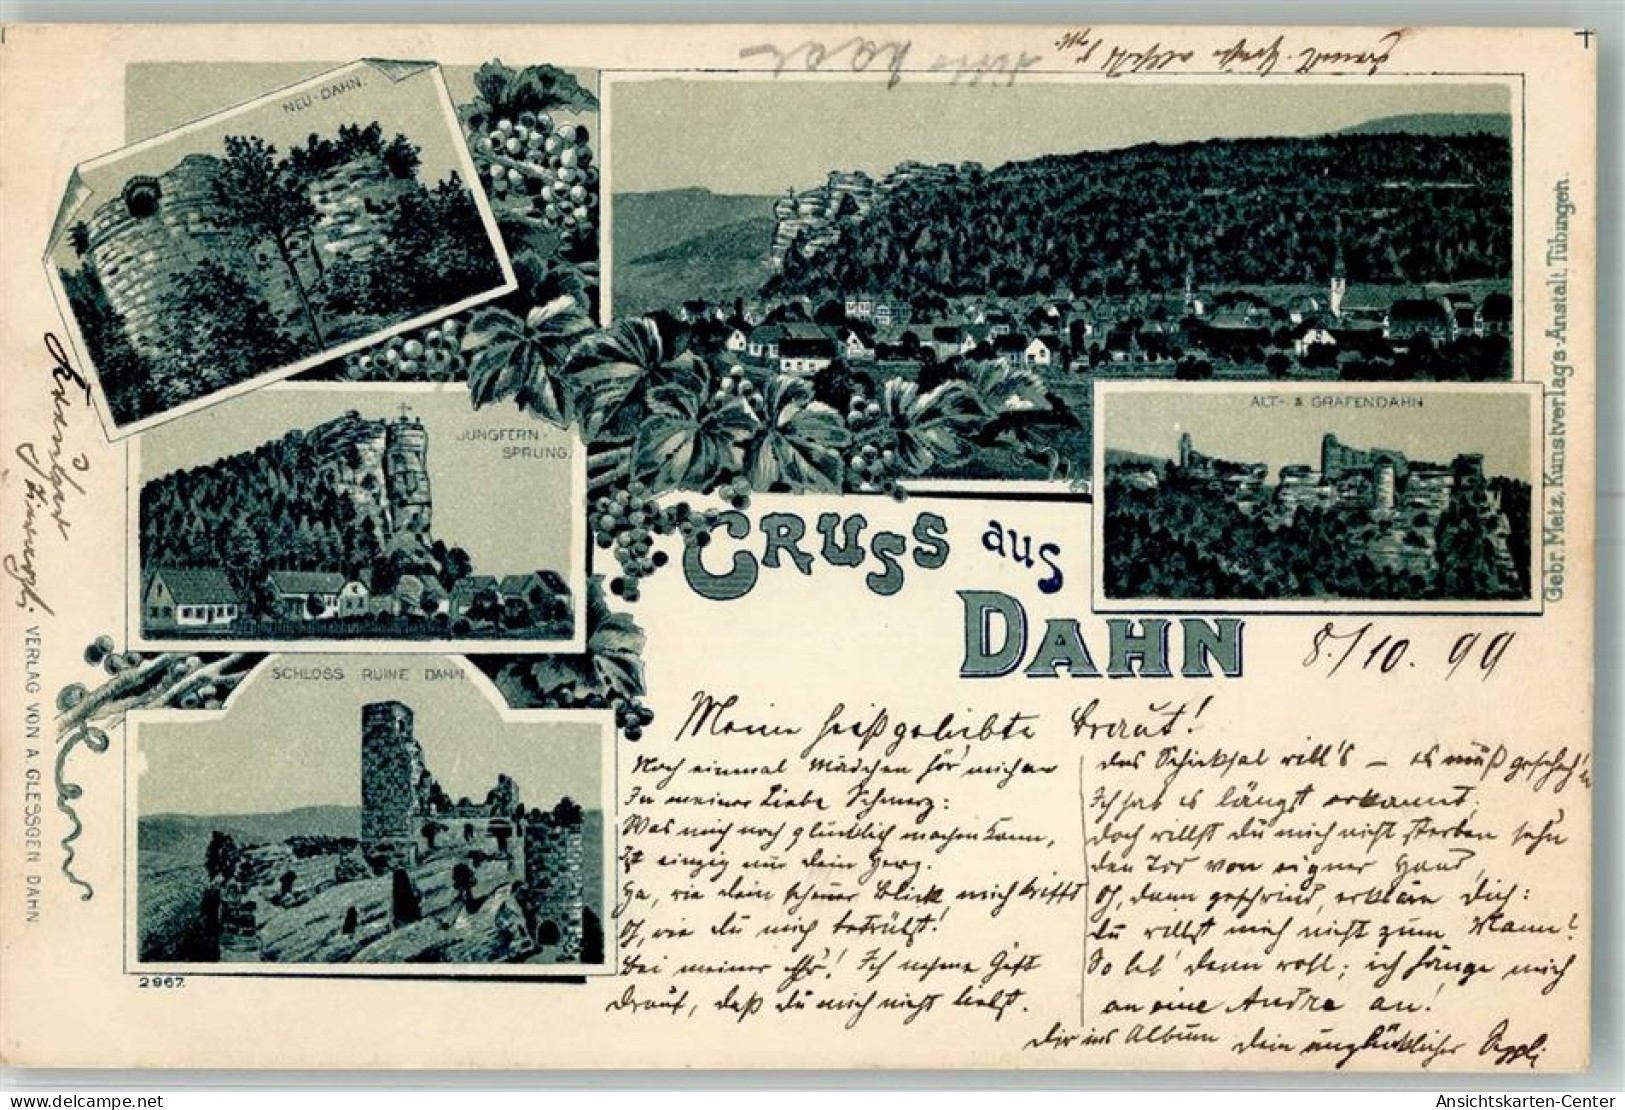 NEU-DAHN.
JUNGFERN-
SPRUNG.
SCHLOSS RUINE DAHN
ALT- & GRAFENDAHN
GRUSS aus
DAHN
8./10. 99
Meine heißgeliebte Braut!
Noch einmal Mädchen hör' mich an
In meiner Liebe Schmerz:
Was mich noch glücklich machen kann,
Ist einzig nur dein Herz.
Ha, wie dein scheuer Blick mich trifft
Oh, wie du mich betrübst!
Bei meiner Ehr'! Ich nehme Gift
Drauf, daß du mich nicht liebst.
das Schicksal will's – es muß gescheh'n
Ich hab es längst erkannt;
Doch willst du mich nicht sterben sehn
den Tod von eigner Hand,
Oh, dann geschwind, erkläre dich:
Du willst mich nicht zum Mann?
So leb' denn wohl; ich hänge mich
an eine Andre an!
Dir ins Album Dein unglücklicher
2967.
VERLAG VON A GLESSGEN DAHN.
Gebr. Metz, Kunstverlags-Anstalt, Tübingen.
Ansichtskarten-Center
www.delcampe.net